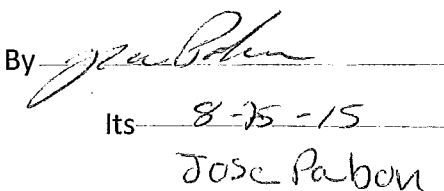 By Jose Pabon
Its 8-25-15
Jose Pabon